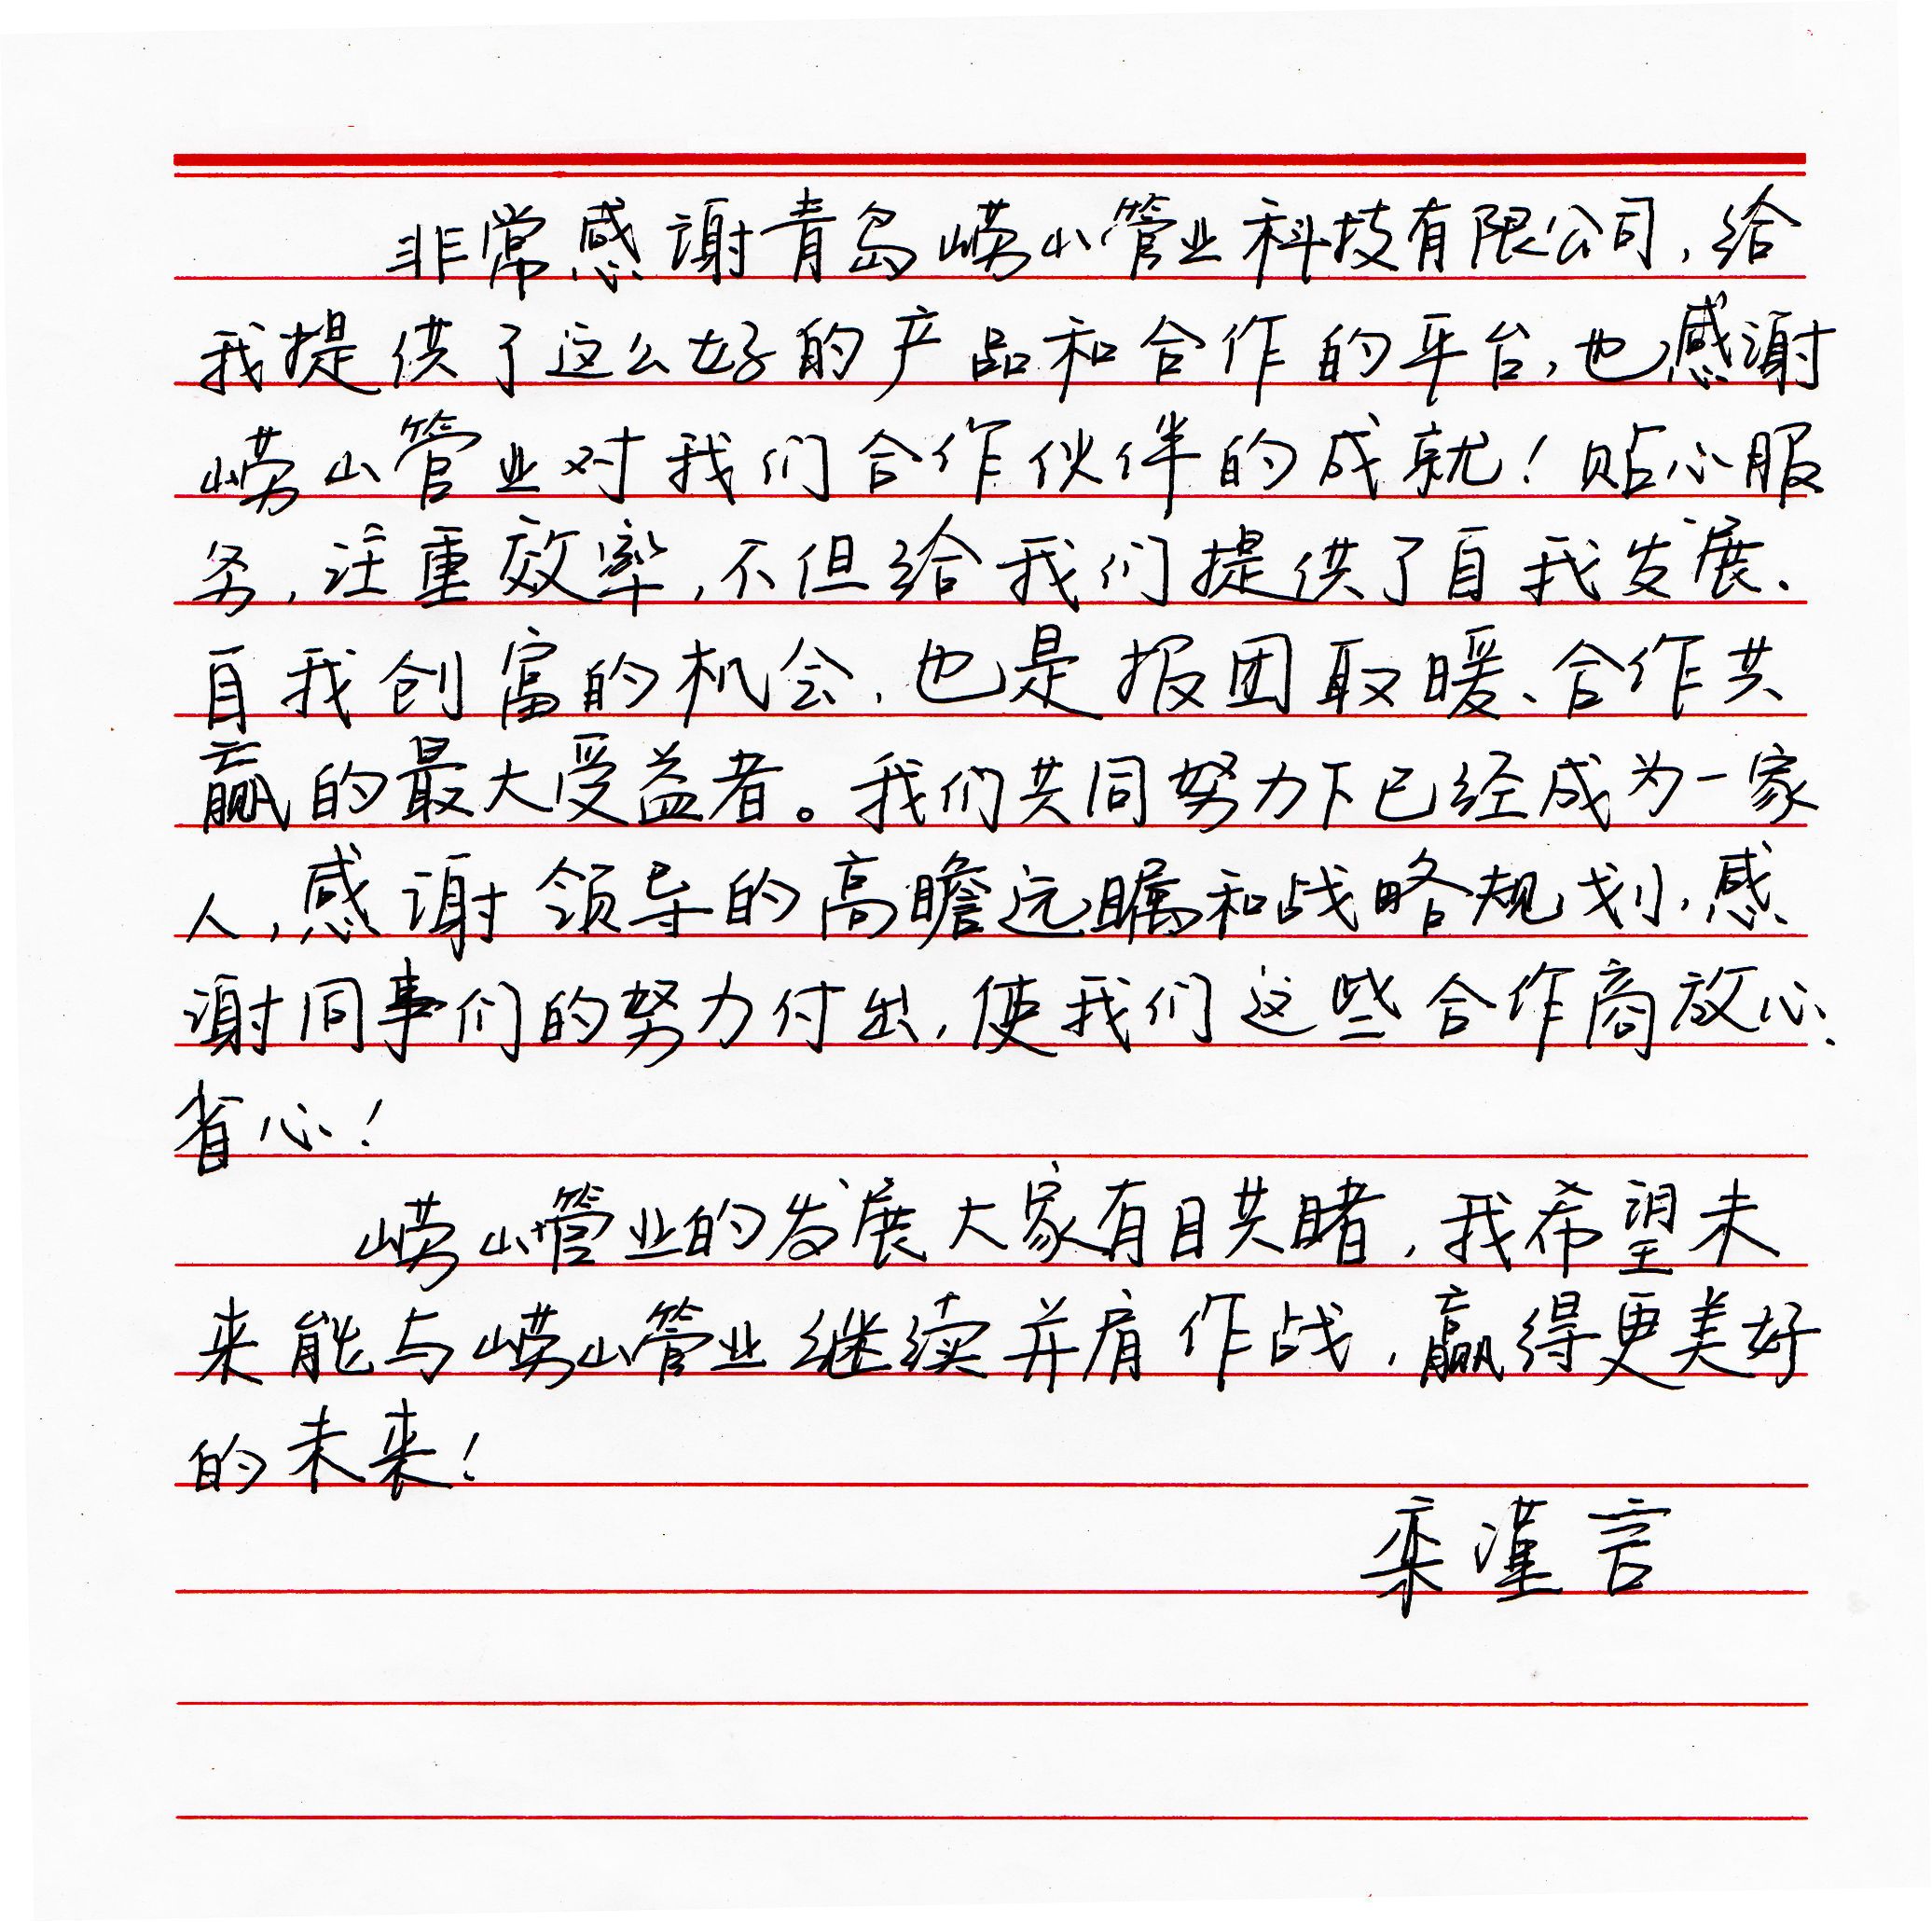 非常感谢青岛崂山管业科技有限公司，给
我提供了这么好的产品和合作的平台，也感谢
崂山管业对我们合作伙伴的成就！贴心服
务，注重效率，不但给我们提供了自我发展、
自我创富的机会，也是报团取暖、合作共
赢的最大受益者。我们共同努力下已经成为一家
人，感谢领导的高瞻远瞩和战略规划，感
谢同事们的努力付出，使我们这些合作商放心、
省心！
崂山管业的发展大家有目共睹，我希望未
来能与崂山管业继续并肩作战，赢得更美好
的未来！
栾瑾言